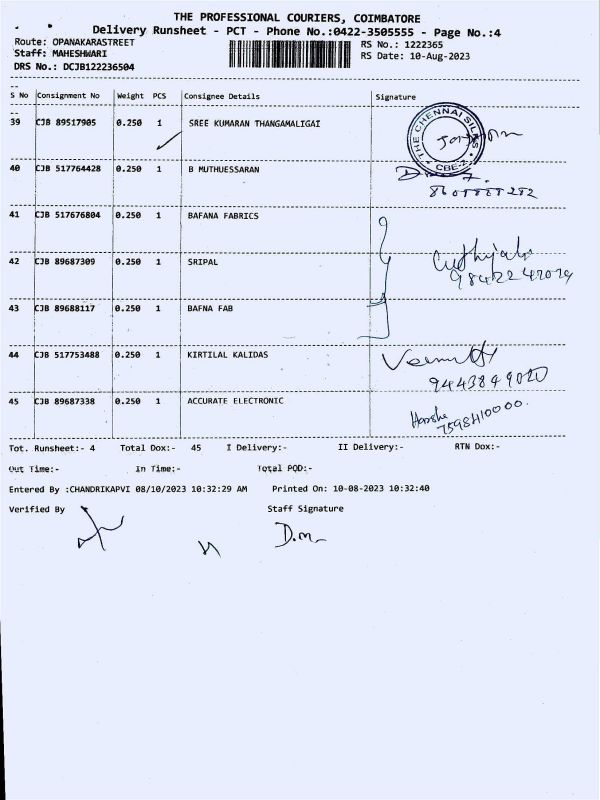 THE PROFESSIONAL COURIERS, COIMBATORE
Delivery Runsheet - PCT - Phone No.:0422-3505555 - Page No.:4
Route: OPANAKARASTREET RS No.: 1222365
Staff: MAHESHWARI RS Date: 10-Aug-2023
DRS No.: DCJB122236504
S No Consignment No Weight PCS Consignee Details Signature
39 CJB 89517905 0.250 1 SREE KUMARAN THANGAMALIGAI
THE CHENNAI SILKS
CBE-
40 CJB 517764428 0.250 1 B MUTHUESSARAN
41 CJB 517676804 0.250 1 BAFANA FABRICS
42 CJB 89687309 0.250 1 SRIPAL
43 CJB 89688117 0.250 1 BAFNA FAB
44 CJB 517753488 0.250 1 KIRTILAL KALIDAS
9443849020
45 CJB 89687338 0.250 1 ACCURATE ELECTRONIC
Harsha
7598410000.
Tot. Runsheet:- 4 Total Dox:- 45 I Delivery:- II Delivery:- RTN Dox:-
Out Time:- In Time:- Total POD:-
Entered By :CHANDRIKAPVI 08/10/2023 10:32:29 AM Printed On: 10-08-2023 10:32:40
Verified By Staff Signature
D.m